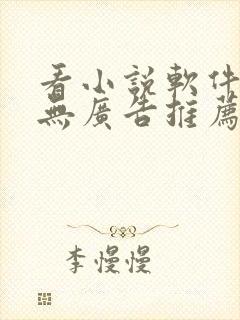 看小説軟件
無廣告推薦
李慢慢